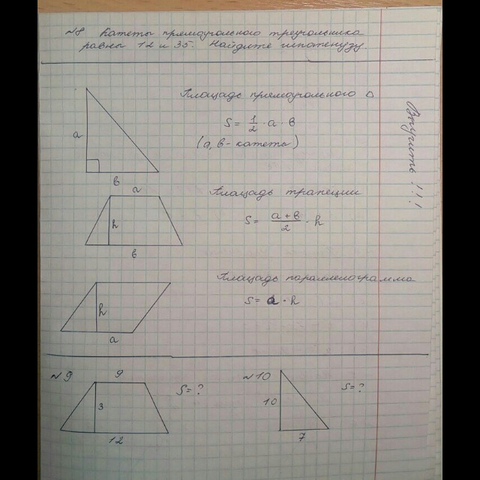 №8 Катеты прямоугольного треугольника
равны 12 и 35. Найдите гипотенузу.
Площадь прямоугольного △
S = 1/2 · a · b
(a, b - катеты)
Выучить !!!
a
b
Площадь трапеции
S = (a + b)/2 · h
a
h
b
Площадь параллелограмма
S = a · h
h
a
№9
9
3
12
S = ?
№10
10
7
S = ?